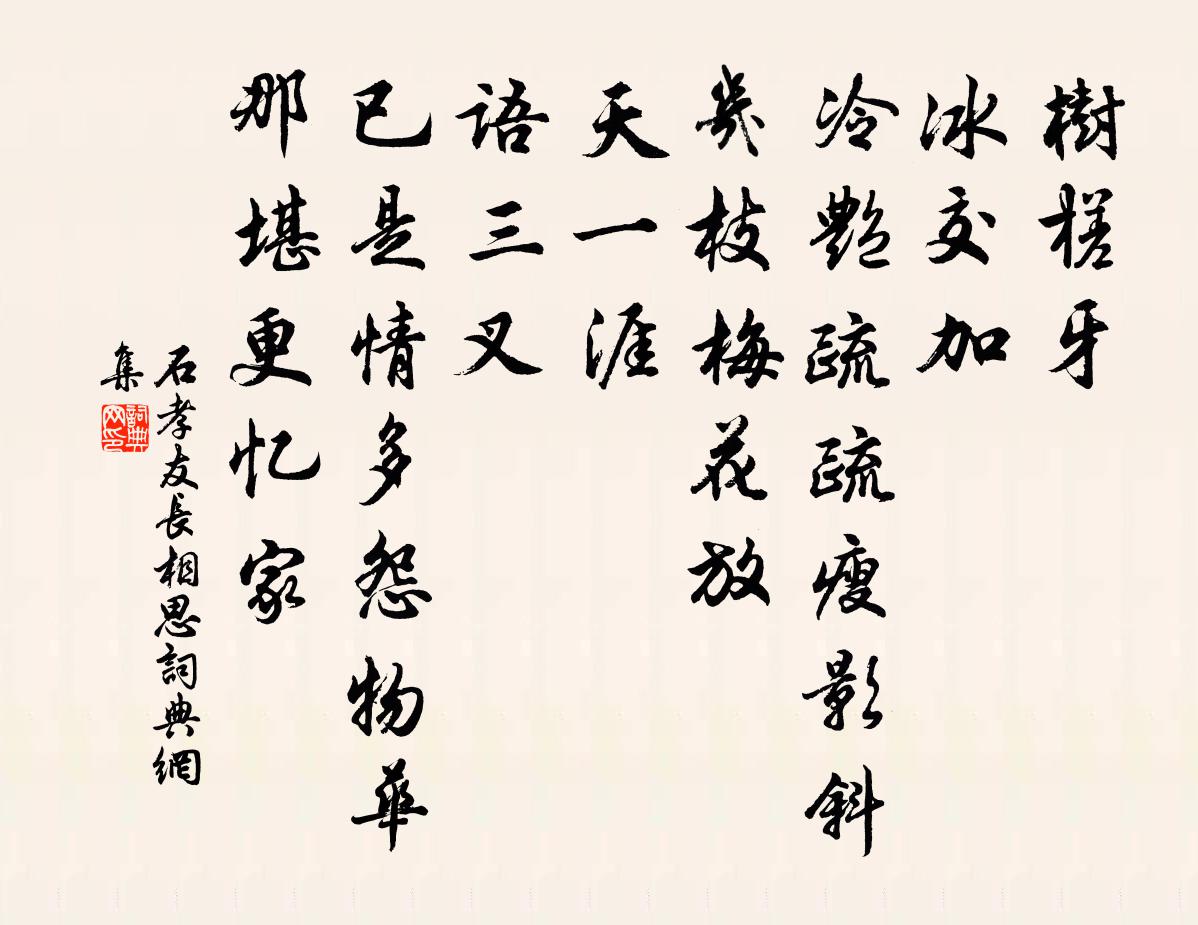 樹槎牙
冰交加
冷艷疏疏瘦影斜
幾枝梅花放
天一涯
語三叉
已是情多怨物華
那堪更忆家
石孝友長相思詞典網
集
詞典
网印